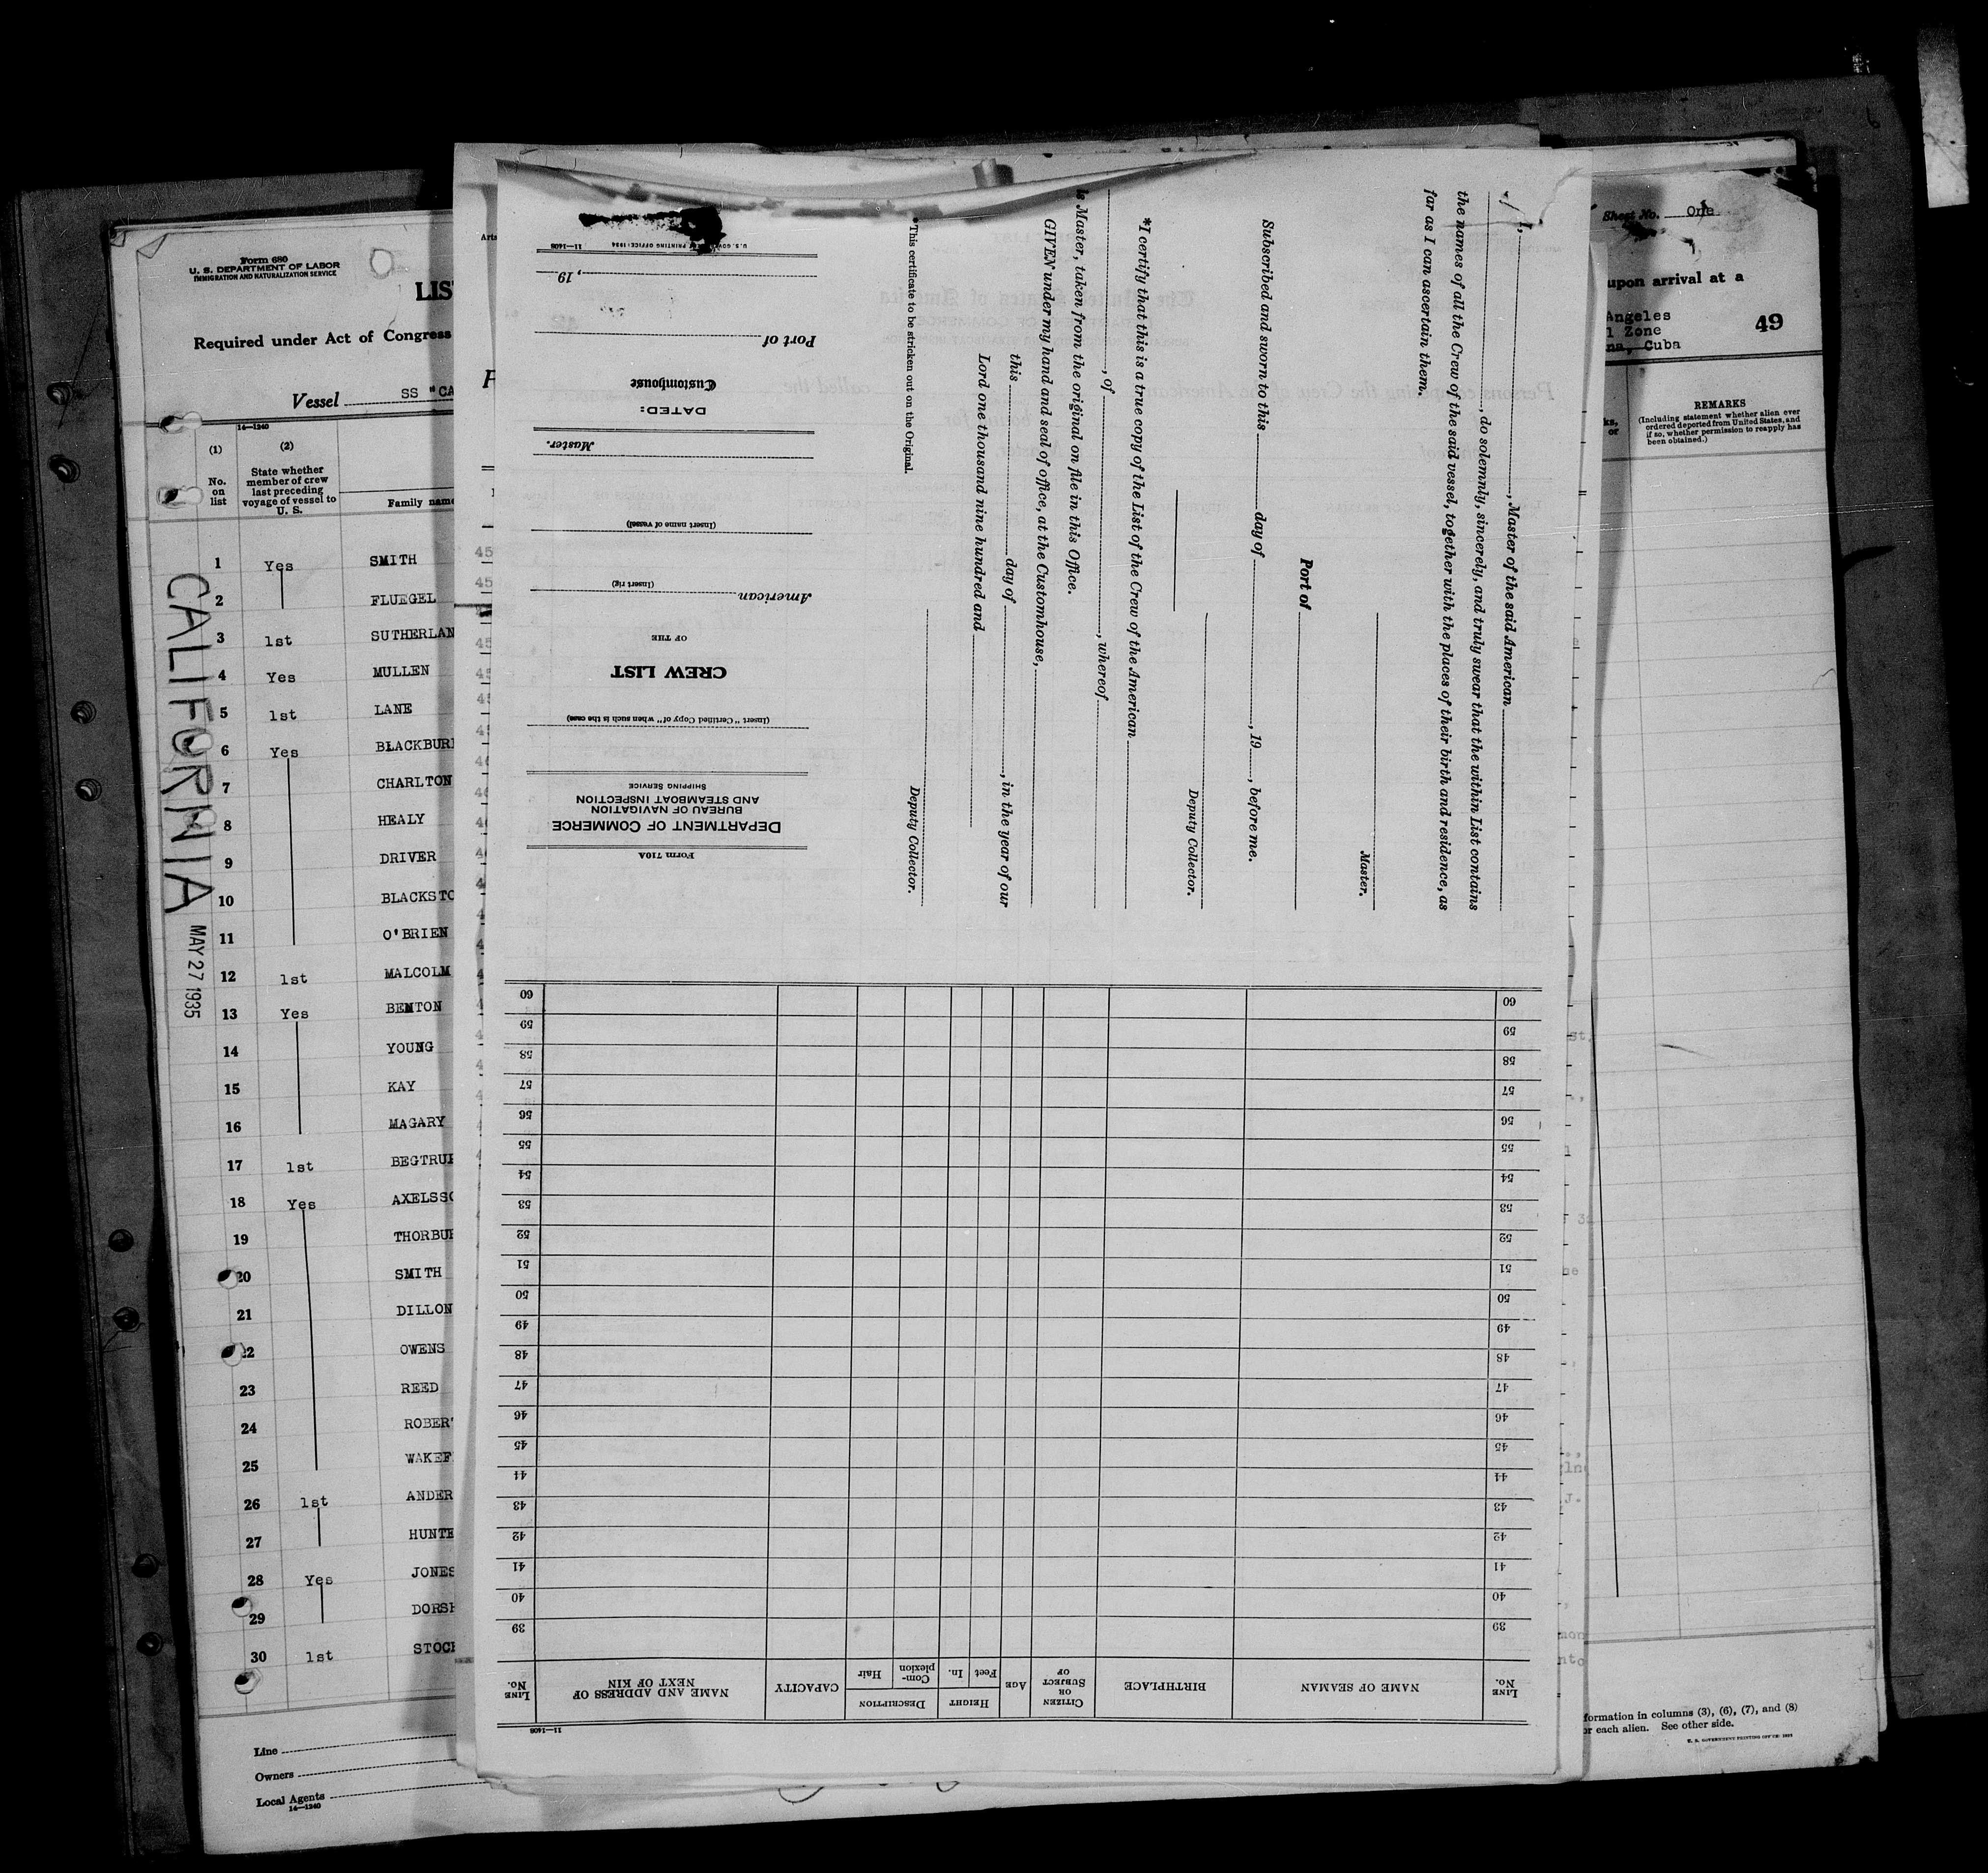 Form 680
U. S. DEPARTMENT OF LABOR
IMMIGRATION AND NATURALIZATION SERVICE
LIS
Required under Act of Congress
Vessel SS "CA
14—1240
(1)
No.
on
list
(2)
State whether
member of crew
last preceding
voyage of vessel to
U. S.
Family name
1 Yes SMITH
2 FLUEGEL
3 1st SUTHERLAN
4 Yes MULLEN
5 1st LANE
6 Yes BLACKBUR
7 CHARLTON
8 HEALY
9 DRIVER
10 BLACKSTO
11 O'BRIEN
12 1st MALCOLM
13 Yes BENTON
14 YOUNG
15 KAY
16 MAGARY
17 1st BEGTRU
18 Yes AXELSSO
19 THORBU
20 SMITH
21 DILLON
22 OWENS
23 REED
24 ROBER
25 WAKEF
26 1st ANDER
27 HUNTE
28 Yes JONES
29 DORSH
30 1st STOC
CALIFORNIA
MAY 27 1935
Line
Owners
Local Agents
14—1240
I, , Master of the said American
, do solemnly, sincerely, and truly swear that the within List contains
the names of all the Crew of the said vessel, together with the places of their birth and residence, as
far as I can ascertain them.
Master.
Port of
Subscribed and sworn to this day of , 19 , before me.
Deputy Collector.
*I certify that this is a true copy of the List of the Crew of the American
, of , whereof
is Master, taken from the original on file in this Office.
GIVEN under my hand and seal of office, at the Customhouse,
this day of , in the year of our
Lord one thousand nine hundred and
Deputy Collector.
*This certificate to be stricken out on the Original.
Form 710A
DEPARTMENT OF COMMERCE
BUREAU OF NAVIGATION
AND STEAMBOAT INSPECTION
SHIPPING SERVICE
(Insert "Certified Copy of" when such is the case)
CREW LIST
OF THE
American
(Insert rig)
(Insert name of vessel)
Master.
DATED:
Customhouse
Port of
, 19
U. S. GOVERNMENT PRINTING OFFICE: 1934 11—1408
11—1408
LINE
No.
NAME OF SEAMAN
BIRTHPLACE
CITIZEN
OR
SUBJECT
OF
AGE
HEIGHT
Feet
In.
DESCRIPTION
Com-
plexion
Hair
CAPACITY
NAME AND ADDRESS OF
NEXT OF KIN
LINE
No.
39 39
40 40
41 41
42 42
43 43
44 44
45 45
46 46
47 47
48 48
49 49
50 50
51 51
52 52
53 53
54 54
55 55
56 56
57 57
58 58
59 59
60 60
Sheet No. One
upon arrival at a
Angeles
l Zone
na, Cuba
49
ks,
or
REMARKS
(Including statement whether alien ever
ordered deported from United States, and
if so, whether permission to reapply has
been obtained.)
formation in columns (3), (6), (7), and (8)
or each alien. See other side.